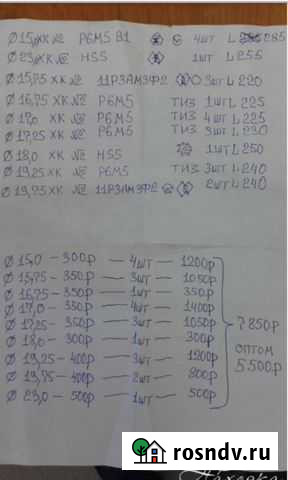 Ø 15,0 ХК № Р6М5 В1 4шт L 285
Ø 23,0 ХК № HSS 1шт L 255
Ø 15,75 ХК № 11Р3АМ3Ф2 О 3шт L 220
Ø 16,75 ХК № Р6М5 ТИЗ 1шт L 225
Ø 17,0 ХК № Р6М5 ТИЗ 4шт L 225
Ø 17,25 ХК № Р6М5 ТИЗ 3шт L 230
Ø 18,0 ХК № HSS 1шт L 250
Ø 19,25 ХК № Р6М5 ТИЗ 3шт L 240
Ø 19,75 ХК № 11Р3АМ3Ф2 2шт L 240
Ø 15,0 — 300р — 4шт — 1200р
Ø 15,75 — 350р — 3шт — 1050р
Ø 16,75 — 350р — 1шт — 350р
Ø 17,0 — 350р — 4шт — 1400р
Ø 17,25 — 350р — 3шт — 1050р
Ø 18,0 — 300р — 1шт — 300р
Ø 19,25 — 400р — 3шт — 1200р
Ø 19,75 — 400р — 2шт — 800р
Ø 23,0 — 500р — 1шт — 500р
7850р
ОПТОМ
5500р
rosndv.ru
Находка